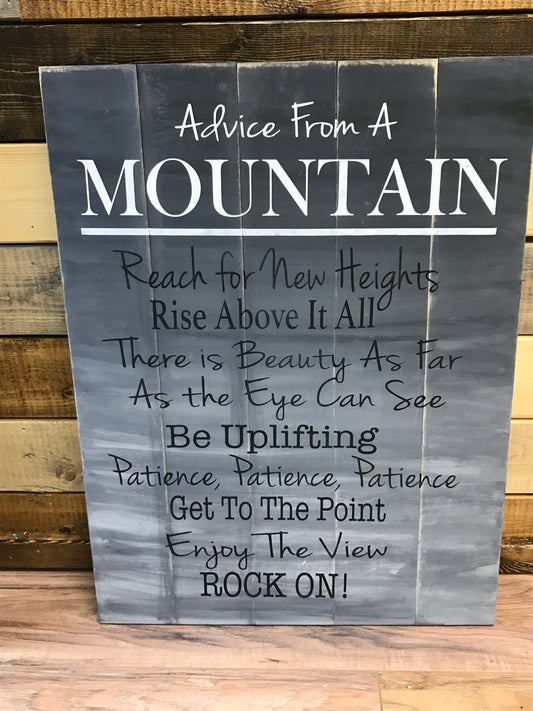 Advice From A
MOUNTAIN
Reach for New Heights
Rise Above It All
There is Beauty As Far
As the Eye Can See
Be Uplifting
Patience, Patience, Patience
Get To The Point
Enjoy The View
ROCK ON!